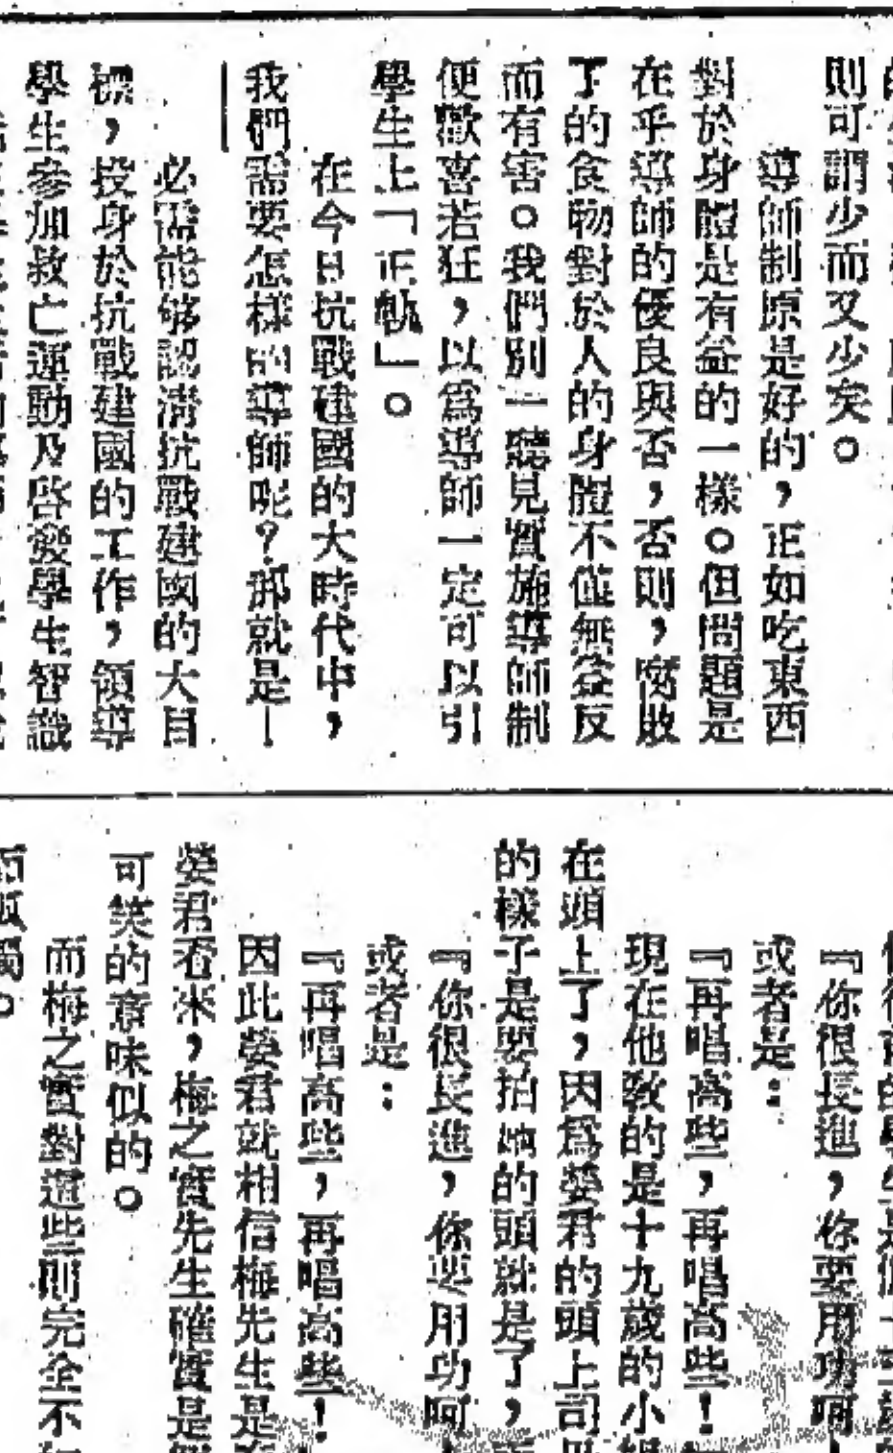 則可謂少而又少矣。
導師制原是好的,正如吃東西
對於身體是有益的一樣。但問題是
在乎導師的優良與否,否則,腐敗
了的食物對於人的身體不僅無益反
而有害。我們別一聽見實施導師制
便歡喜若狂,以爲導師一定可以引
學生上「正軌」。
在今日抗戰建國的大時代中,
我們需要怎樣的導師呢?那就是—
—必需能够認清抗戰建國的大目
標,投身於抗戰建國的工作,領導
學生參加救亡運動及啓發學生智識
『你很長進,你要用功呵
或者是:
『再唱高些,再唱高些!
現在他敎的是十九歲的小
在頭上了,因爲嫈君的頭上
的樣子是要拍她的頭就是了,
『你很長進,你要用功呵
或者是:
『再唱高些,再唱高些!
因此嫈君就相信梅先生是
嫈君看來,梅之實先生確實是
可笑的意味似的。
而梅之實對這些則完全不